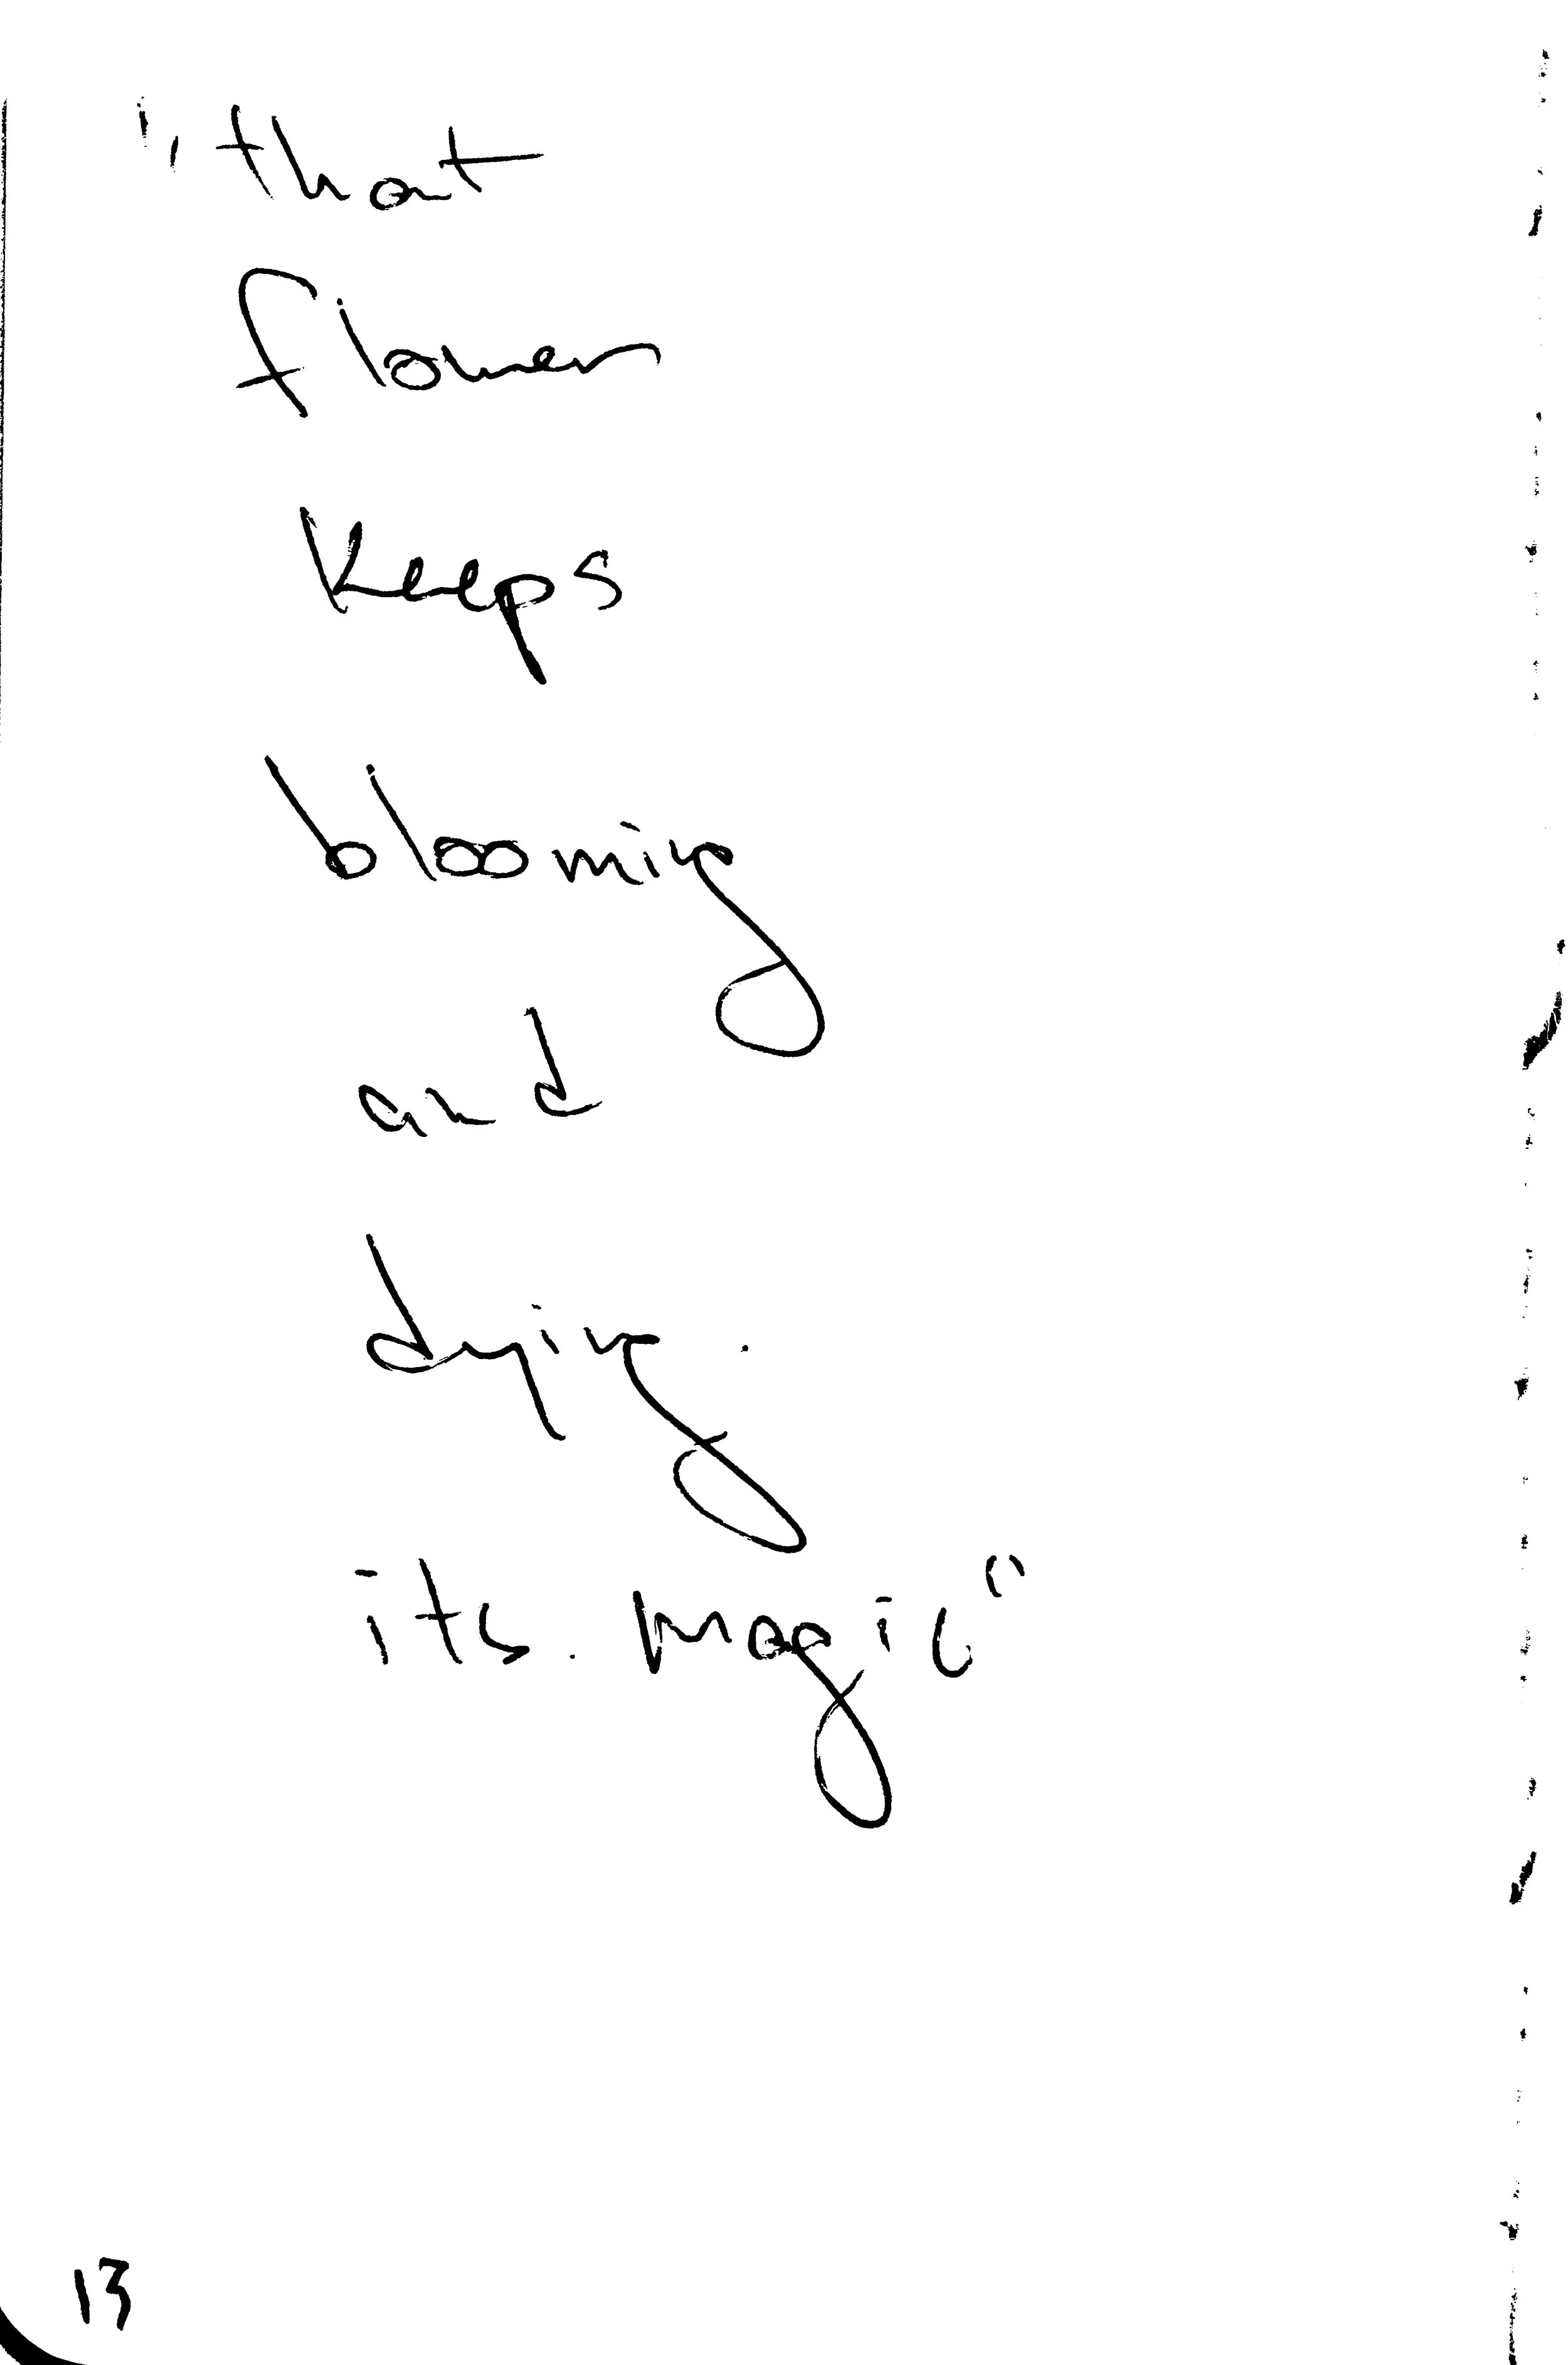 "that
flower
keeps
blooming
and
dying.
its. magic"
13